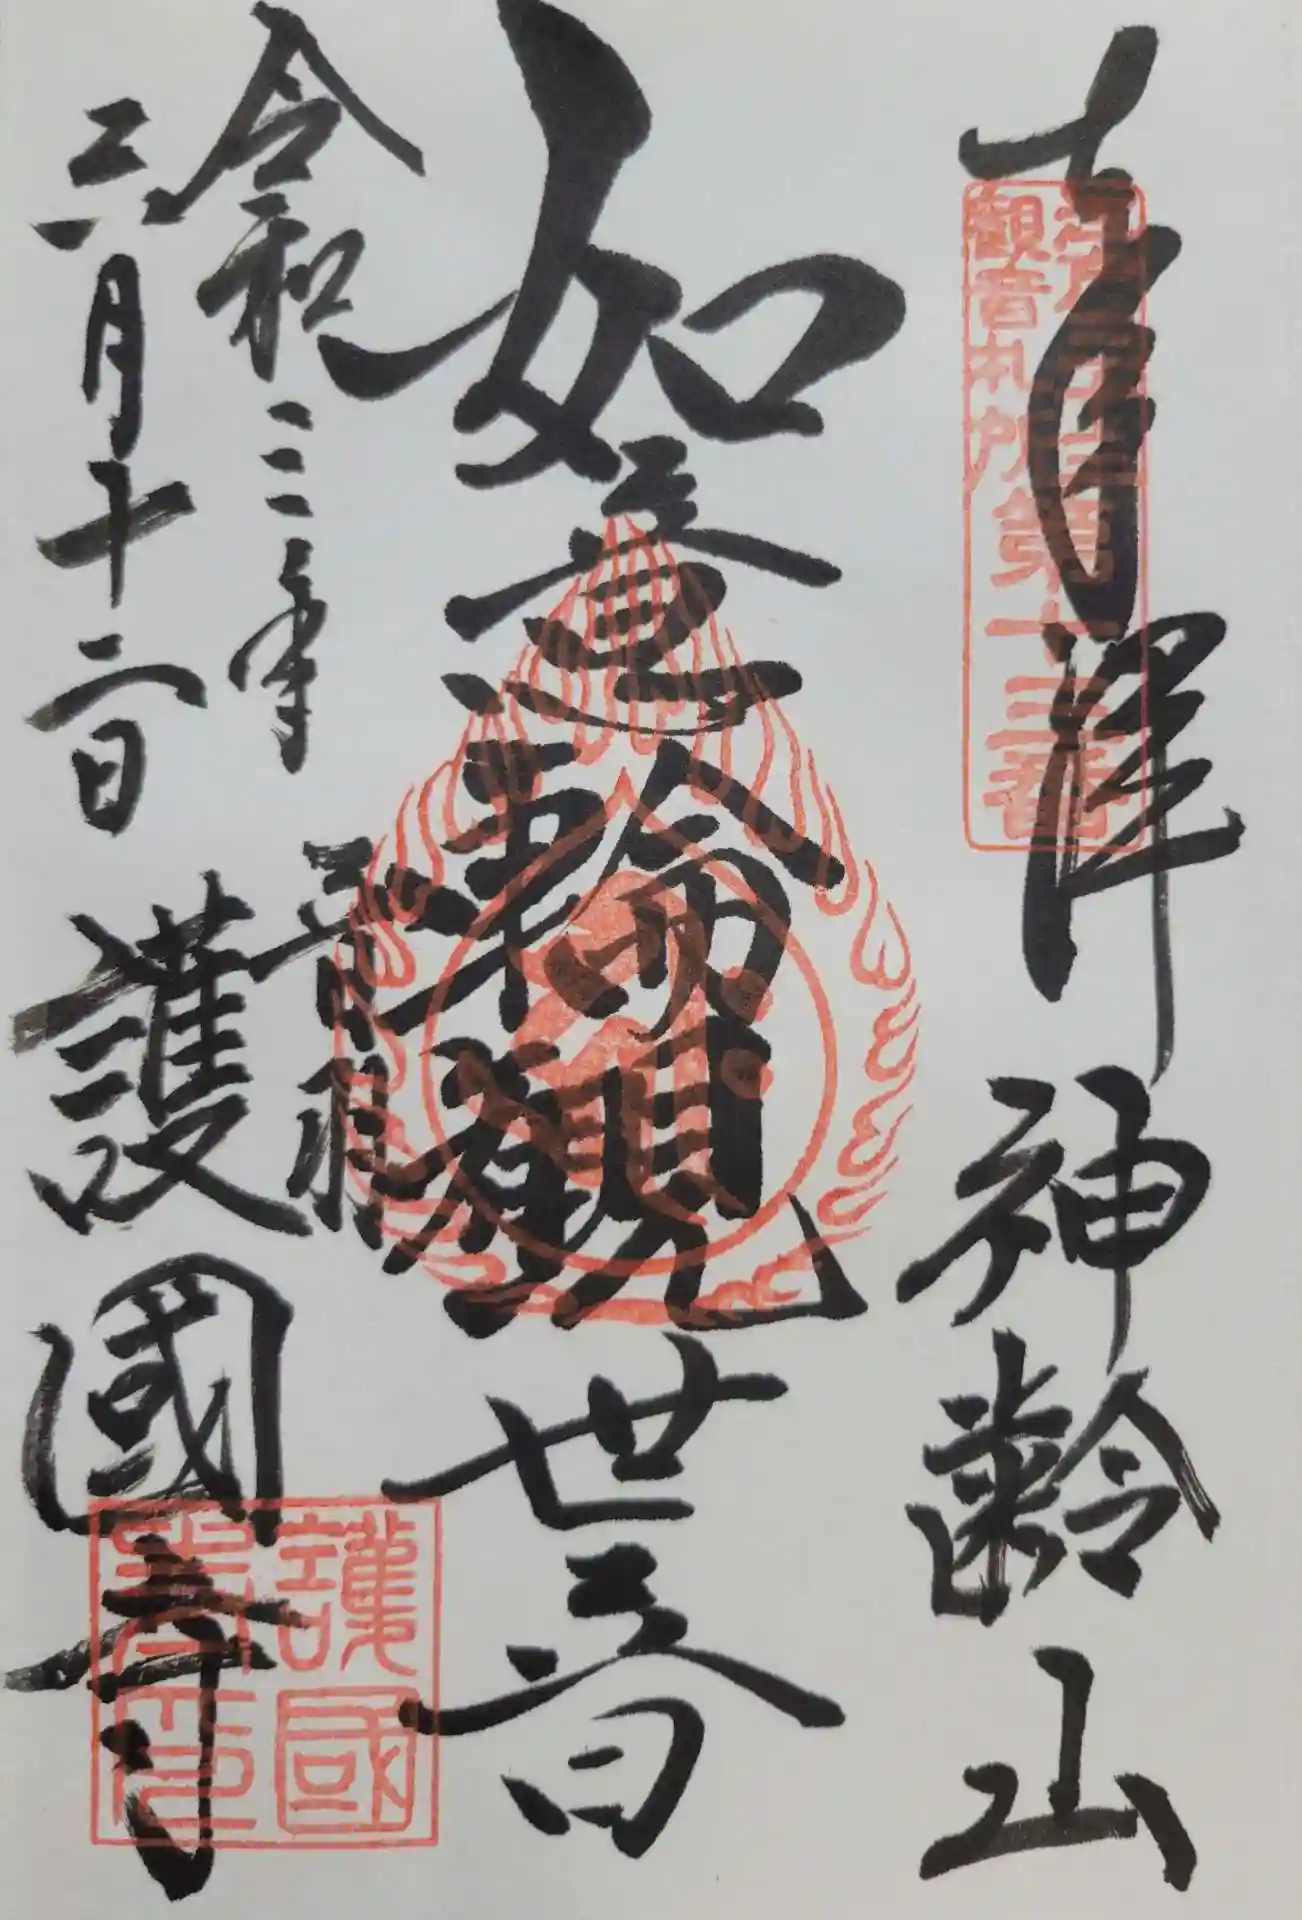 奉拝 神齢山
江戸三十三
觀音札所
第十三番
如意輪観世音
令和三年
六月十二日
音羽
護國寺
護國
寺印